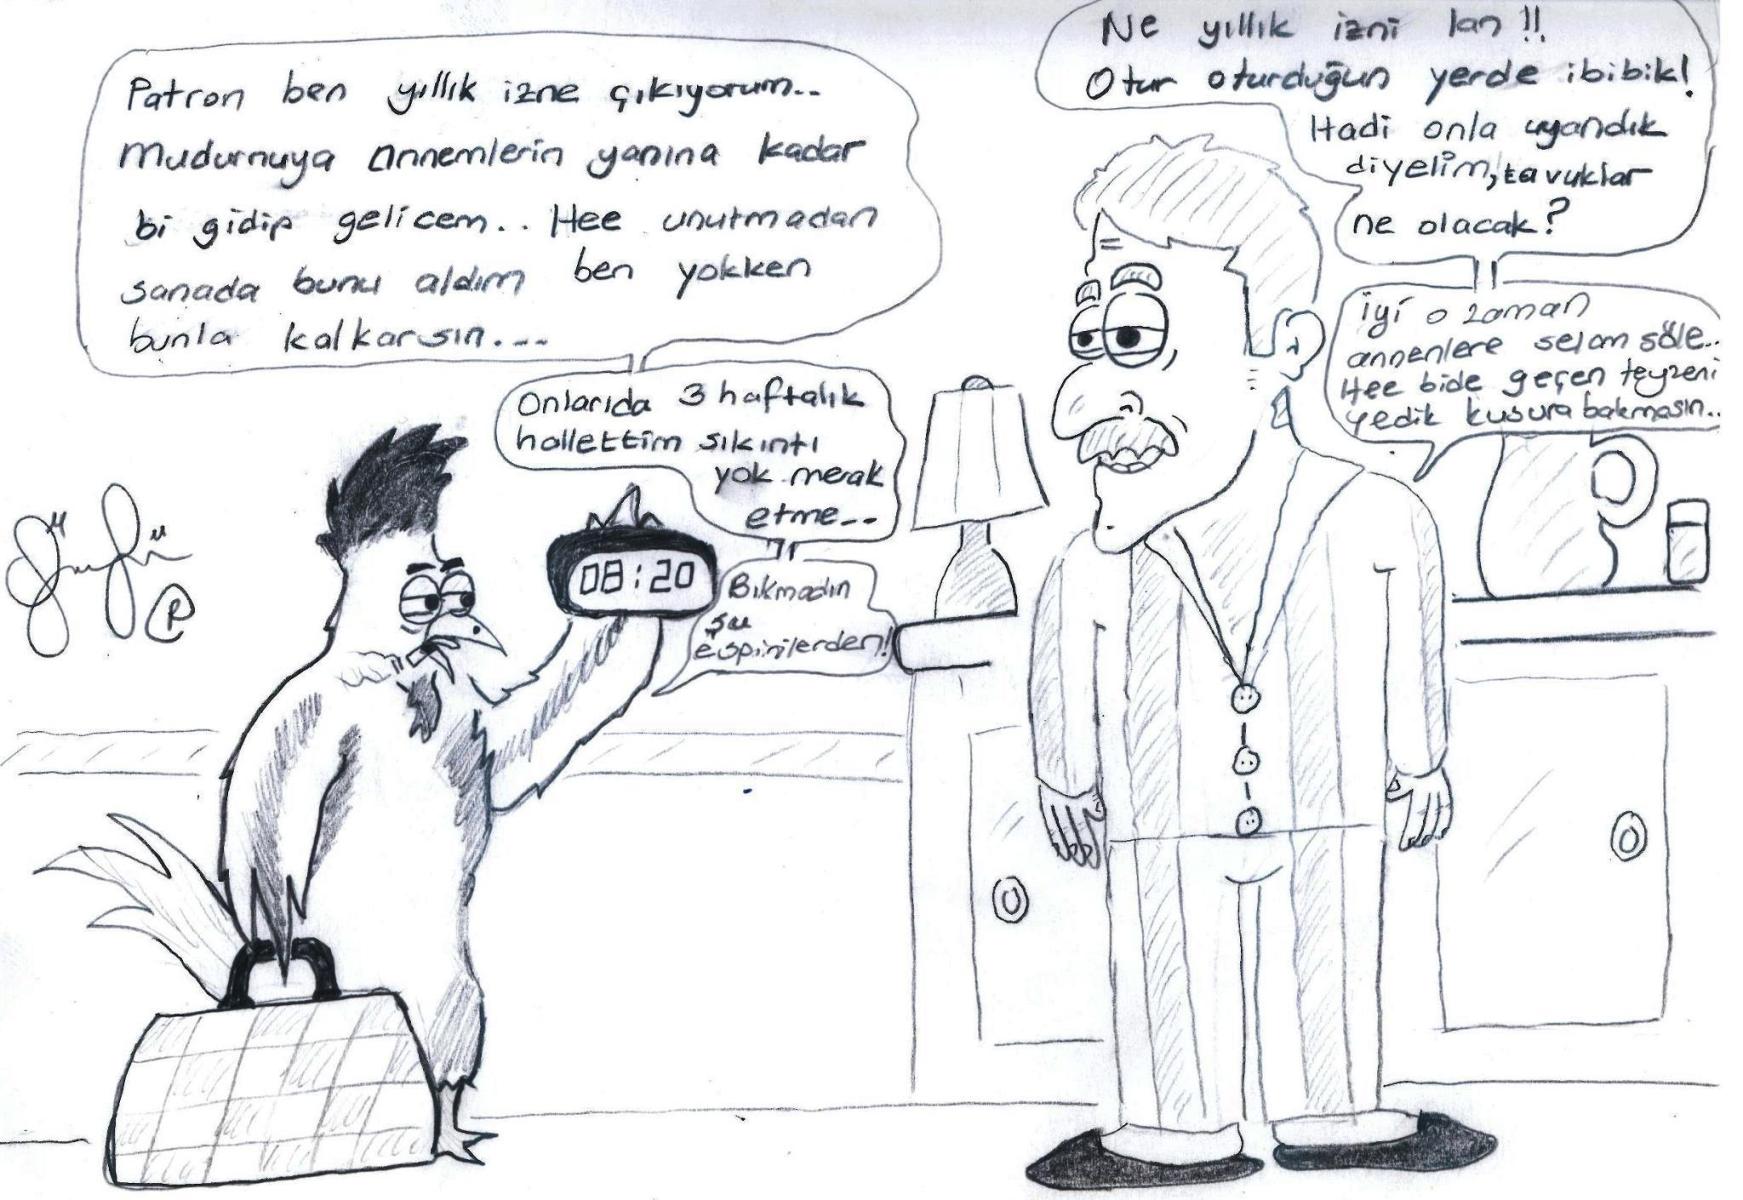 Patron ben yıllık izne çıkıyorum..
Mudurnuya annemlerin yanına kadar
bi gidip gelicem.. Hee unutmadan
sanada bunu aldım ben yokken
bunla kalkarsın...
Ne yıllık izni lan !!
Otur oturduğun yerde ibibik!
Hadi onla uyandık
diyelim, tavuklar
ne olacak?
Onlarıda 3 haftalık
hallettim sıkıntı
yok merak
etme..
İyi o zaman
annenlere selam söle..
Hee bide geçen teyzeni
yedik kusura bakmasın..
Bıkmadın
şu
espirilerden!
08:20